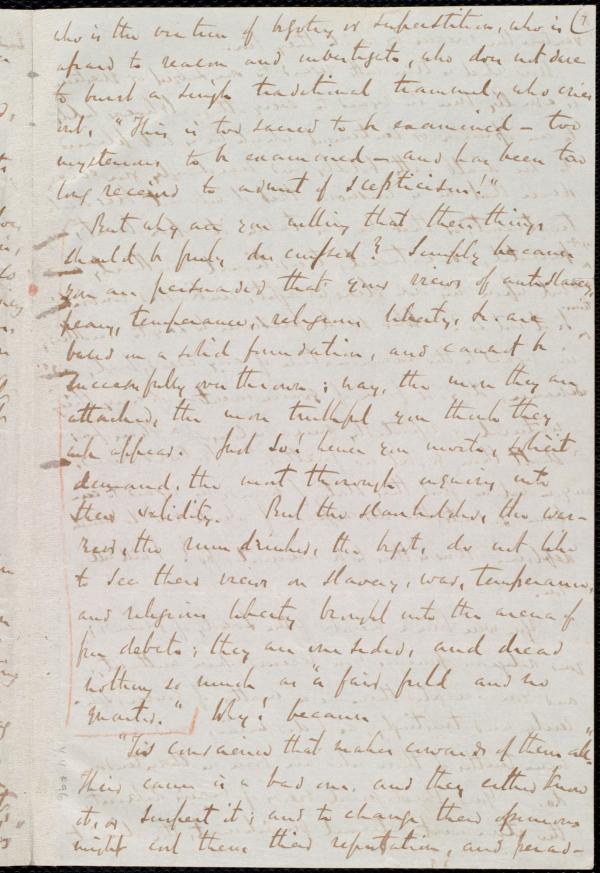 who is the victim of bigotry or superstition, who is (7
afraid to reason and investigate, who does not dare
to burst a single traditional trammel, who cries
out, "This is too sacred to be examined — too
mysterious to be examined — and has been too
long received to admit of scepticism!"
But why are you willing that these things
should be freely discussed? Simply because
you are persuaded that your views of anti-slavery,
peace, temperance, religious liberty, &c. are
based on a solid foundation, and cannot be
successfully overthrown; nay, the more they are
attacked, the more truthful you think they
will appear. Just so! hence you invite, solicit
demand, the most thorough inquiry into
their validity. But the slaveholder, the war-
rior, the rum drinker, the bigot, do not like
to see their views on slavery, war, temperance,
and religious liberty brought into the arena of
free debate; they are one sided, and dread
nothing so much as "a fair field and no
quarter." Why? because
"'Tis conscience that makes cowards of them all."
Their cause is a bad one, and they either know
it, or suspect it; and to change their opinions
might cost them their reputation, and perad-